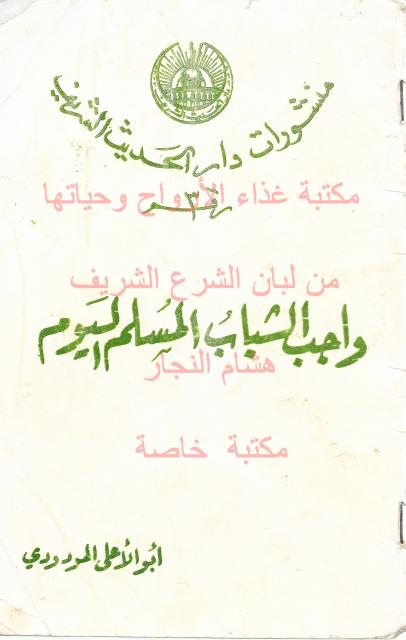 منشورات دار الحديث الشريف
رقم ٣
مكتبة غذاء الأرواح وحياتها
من لبان الشرع الشريف
واجب الشباب المسلم اليوم
هشام النجار
مكتبة خاصة
أبو الأعلى المودودي